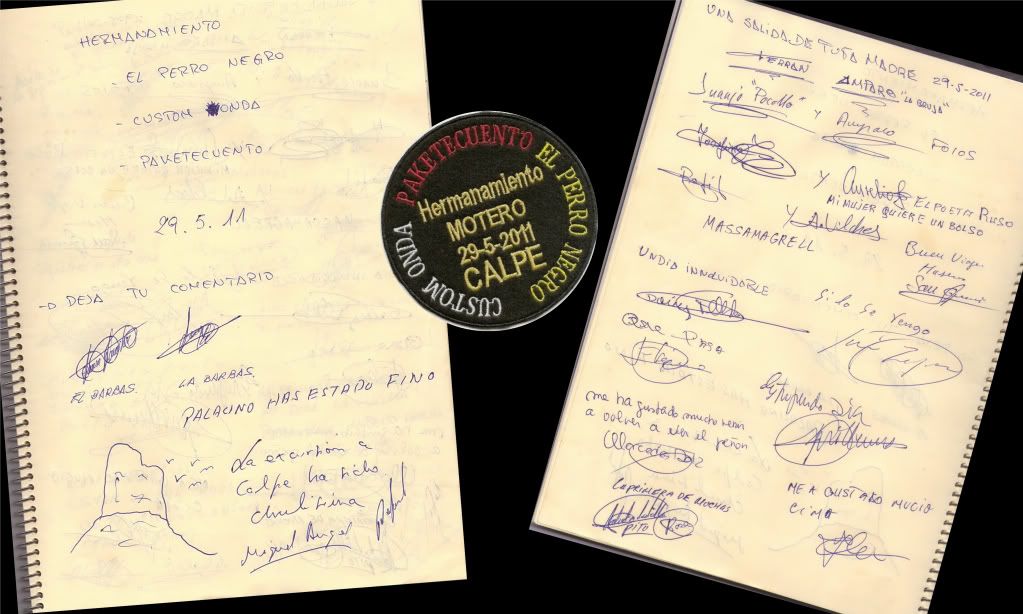 HERMANAMIENTO
- EL PERRO NEGRO
- CUSTOM ONDA
- PAKETECUENTO
29.5.11
DEJA TU COMENTARIO
EL BARBAS. LA BARBAS.
PALACINO HAS ESTADO FINO
La excursión a
Calpe ha sido
chulisima
Miguel Angel
PAKETECUENTO EL PERRO NEGRO
Hermanamiento
MOTERO
29-5-2011
CALPE
CUSTOM ONDA
UNA SALIDA DE TUTA MADRE 29-5-2011
AMPARO "LA BRUJA"
Juanjo y Amparo FOTOS
y Aurelio EL POETA
MI MUJER QUIERE UN BOLSO
Y
MASSAMAGRELL
Buen Viaje
UN DIA INNOVIDABLE
Si lo se vengo
Que Pasa
Estupendo Día
me ha gustado mucho venir
a volver a ver el peñon
Mercedes Díaz
LA PRIMERA DE MUCHAS
PITO Rosa
ME A GUSTADO MUCIO
CIMO